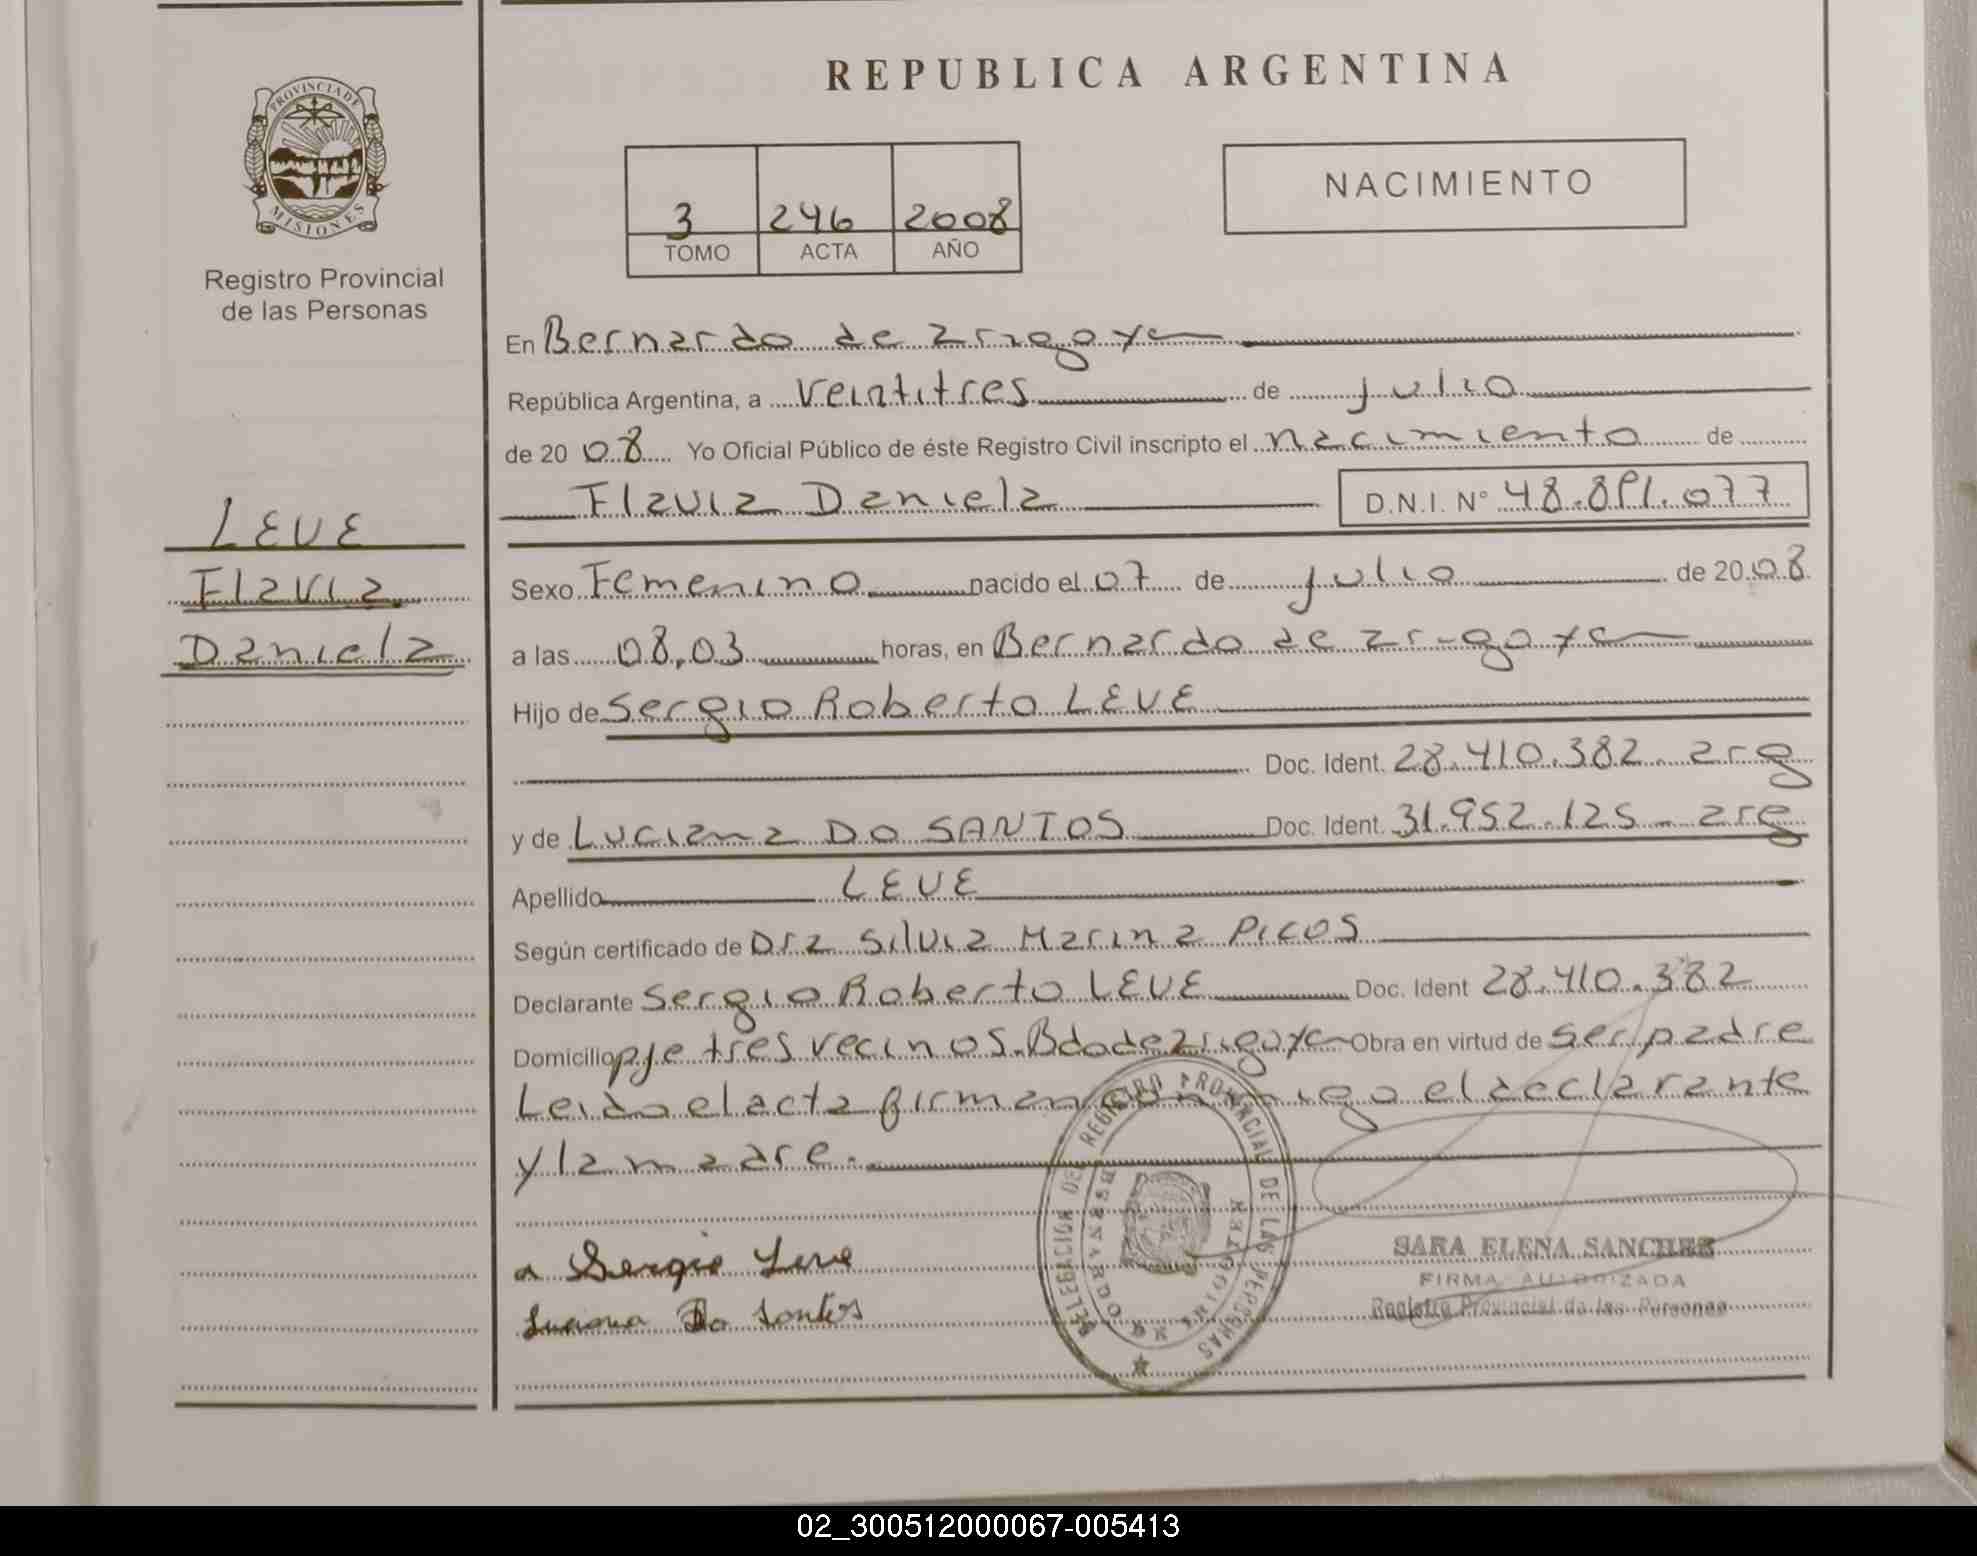 REPUBLICA ARGENTINA
PROVINCIA DE
MISIONES
Registro Provincial
de las Personas
3 246 2008
TOMO ACTA AÑO
NACIMIENTO
LEVE
Flavia
Daniela
En Bernardo de Irigoyen
República Argentina, a veintitres de julio
de 2008 Yo Oficial Público de éste Registro Civil inscripto el nacimiento de
Flavia Daniela D.N.I. Nº 48.891.077
Sexo Femenino nacido el 07 de julio de 2008
a las 08,03 horas, en Bernardo de Irigoyen
Hijo de Sergio Roberto LEVE
Doc. Ident. 28.410.382 - arg
y de Luciana DO SANTOS Doc. Ident. 31.952.125 - arg
Apellido LEVE
Según certificado de Dra Silvia Marina PICOS
Declarante Sergio Roberto LEVE Doc. Ident 28.410.382
Domicilio pje tres vecinos. Bdo de Irigoyen Obra en virtud de ser padre
Leida el acta firman conmigo el declarante
y la madre.
Sergio Leve
Luciana Do Santos
DELEGACION DEL REGISTRO PROVINCIAL DE LAS PERSONAS
BERNARDO DE IRIGOYEN
SARA ELENA SANCHEZ
FIRMA AUTORIZADA
Registro Provincial de las Personas
02_300512000067-005413